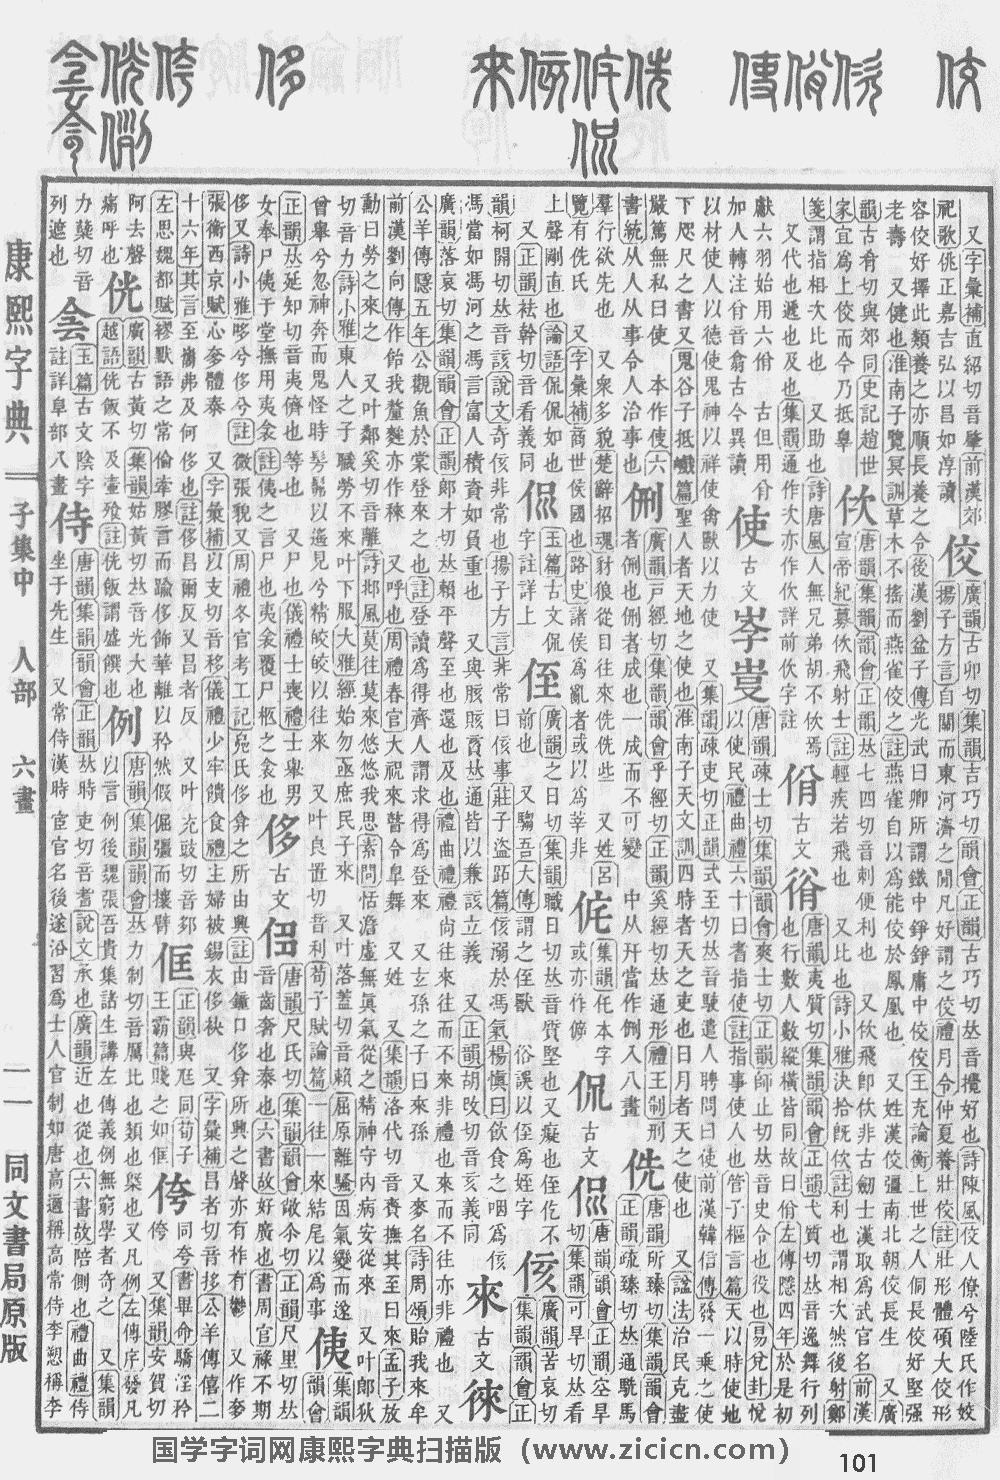 又字彙補直紹切音肇前漢郊 佼 廣韻古卯切集韻吉巧切韻會正韻古巧切𠀤音攪好也詩陳風佼人僚兮陸氏作姣
祀歌佻正嘉吉弘以昌如淳讀 揚子方言自關而東河濟之閒凡好謂之佼禮月令仲夏養壯佼註壯形體碩大佼形
容佼好擇此類養之亦順長養之令後漢劉盆子傳光武曰卿所謂鐵中錚錚庸中佼佼王充論衡上世之人侗長佼好堅强
老壽 又健也淮南子覽冥訓草木不搖而燕雀佼之註燕雀自以爲能佼於鳳凰也 又姓漢佼彊南北朝佼長生 又廣
韻古肴切與郊同史記趙世 佽 唐韻集韻韻會正韻𠀤七四切音刺便利也 又佽飛卽佽非古劒士漢取爲武官名前漢
家宜爲上佼而今乃抵辠 宣帝紀募佽飛射士註輕疾若飛也 又比也詩小雅決拾旣佽註利也謂相次然後射鄭
箋謂指相次比也 又助也詩唐風人無兄弟胡不佽焉 佾 古文 唐韻夷質切集韻韻會正韻弋質切𠀤音逸舞行列
又代也遞也及也集韻通作次亦作佽詳前佽字註 也行數人數縱橫皆同故曰佾左傳隱四年於是初
獻六羽始用六佾 古但用㑜 使 古文 唐韻疎士切集韻韻會爽士切正韻師止切𠀤音史令也役也易兌卦悅
加人轉注㑜音翕古今異讀 以使民禮曲禮六十曰耆指使註指事使人也管子樞言篇天以時使地
以材使人以德使鬼神以祥使禽獸以力使 又集韻疎吏切正韻式至切𠀤音駛遣人聘問曰使前漢韓信傳發一乘之使
下咫尺之書又鬼谷子抵巇篇聖人者天地之使也淮南子天文訓四時者天之吏也日月者天之使也 又諡法治民克盡
嚴篤無私曰使 本作使六 侀 廣韻戸經切集韻韻會乎經切正韻奚經切𠀤通形禮王制刑 侁 唐韻所臻切集韻韻會
書統从人从事令人治事也 者侀也侀者成也一成而不可變 中从幵當作侀入八畫 正韻疏臻切𠀤通駪馬
羣行欲先也 又衆多貌楚辭招魂豺狼從目往來侁侁些 又姓呂 侂 集韻仛本字 侃 古文 㑁 唐韻韻會正韻空旱
覽有侁氏 又字彙補商世侯國也路史諸侯爲亂者或以爲莘非 或亦作侘 切集韻可旱切𠀤看
上聲剛直也論語侃侃如也 㑁 玉篇古文侃 侄 廣韻之日切集韻職日切𠀤音質堅也又癡也侄仡不 侅 廣韻苦哀切
又正韻袪幹切音看義同 字註詳上 前也 又騶吾大傳謂之侄獸 俗誤以侄爲姪字 集韻韻會正
韻柯開切𠀤音該說文奇侅非常也揚子方言非常曰侅事莊子盜跖篇侅溺於馮氣楊愼曰飲食之咽爲侅 來 古文 徠
馮當如馮河之馮言富人積資如負重也 又與胲賅𠀤通皆以兼該立義 又正韻胡改切音亥義同
廣韻落哀切集韻韻會正韻郞才切𠀤賴平聲至也還也及也禮曲禮禮尙往來往而不來非禮也來而不往亦非禮也 又
公羊傳隱五年公觀魚於棠登來之也註登讀爲得齊人謂求得爲登來 又玄孫之子曰來孫 又麥名詩周頌貽我來牟
前漢劉向傳作飴我釐麰亦作秾 又呼也周禮春官大祝來瞽令皐舞 又姓 又集韻洛代切音賚撫其至曰來孟子放
勳曰勞之來之 又叶鄰奚切音離詩邶風莫往莫來悠悠我思素問恬澹虛無眞氣從之精神守內病安從來 又叶郞狄
切音力詩小雅東人之子職勞不來叶下服大雅經始勿亟庶民子來 又叶落蓋切音賴屈原離騷因氣變而遂 侇 集韻
曾舉兮忽神奔而鬼怪時髣髴以遙見兮精皎皎以往來 又叶良置切音利荀子賦論篇一往一來結尾以爲事 韻會
正韻𠀤延知切音夷儕也等也 又尸也儀禮士喪禮士舉男 侈 古文 唐韻尺氏切集韻韻會敞尒切正韻尺里切𠀤
女奉尸侇于堂撫用夷衾註侇之言尸也夷衾覆尸柩之衾也 音齒奢也泰也六書故好廣也書周官祿不期
侈又詩小雅哆兮侈兮註微張貌又周禮冬官考工記鳧氏侈弇之所由興註由鐘口侈弇所興之聲亦有柞有鬱 又作奓
張衡西京賦心奓體泰 又字彙補以支切音移儀禮少牢饋食禮主婦被錫衣侈袂 又字彙補昌者切音扯公羊傳僖二
十六年其言至巂弗及何侈也註侈昌爾反又昌者反 又叶充豉切音卶 㑌 正韻與尫同荀子 侉 同夸書畢命驕淫矜
左思魏都賦繆默語之常倫牽膠言而踰侈飾華離以矜然假倔彊而攘臂 王霸篇賤之如㑌 侉 又集韻安賀切
阿去聲 侊 廣韻古黃切集韻姑黃切𠀤音光大也 例 唐韻集韻韻會𠀤力制切音厲比也類也㮣也又凡例左傳序發凡
痛呼也 越語侊飯不及壷飱註侊飯謂盛饌也 以言例後魏張吾貴集諸生講左傳義例無窮學者奇之 又集韻
力櫱切音 侌 玉篇古文陰字 侍 唐韻集韻韻會正韻𠀤時吏切音耆說文承也廣韻近也從也六書故陪側也禮曲禮侍
列遮也 註詳阜部八畫 坐于先生 又常侍漢時宦官名後遂沿習爲士人官制如唐高適稱高常侍李愬稱李
康熙字典 子集中 人部 六畫 一一 同文書局原版
国学字词网康熙字典扫描版（www.zicicn.com） 101